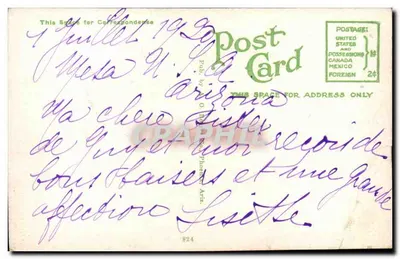 This Space for Correspondence
1 Juillet 1920
Mesa U.S.A
Arizona
Ma chere Sister
de Guy et moi recois de
bons baisers et une grande
affection Lisette
Post Card
THIS SPACE FOR ADDRESS ONLY
POSTAGE:
UNITED STATES AND POSSESSIONS
CANADA
MEXICO
1¢
FOREIGN 2¢
824